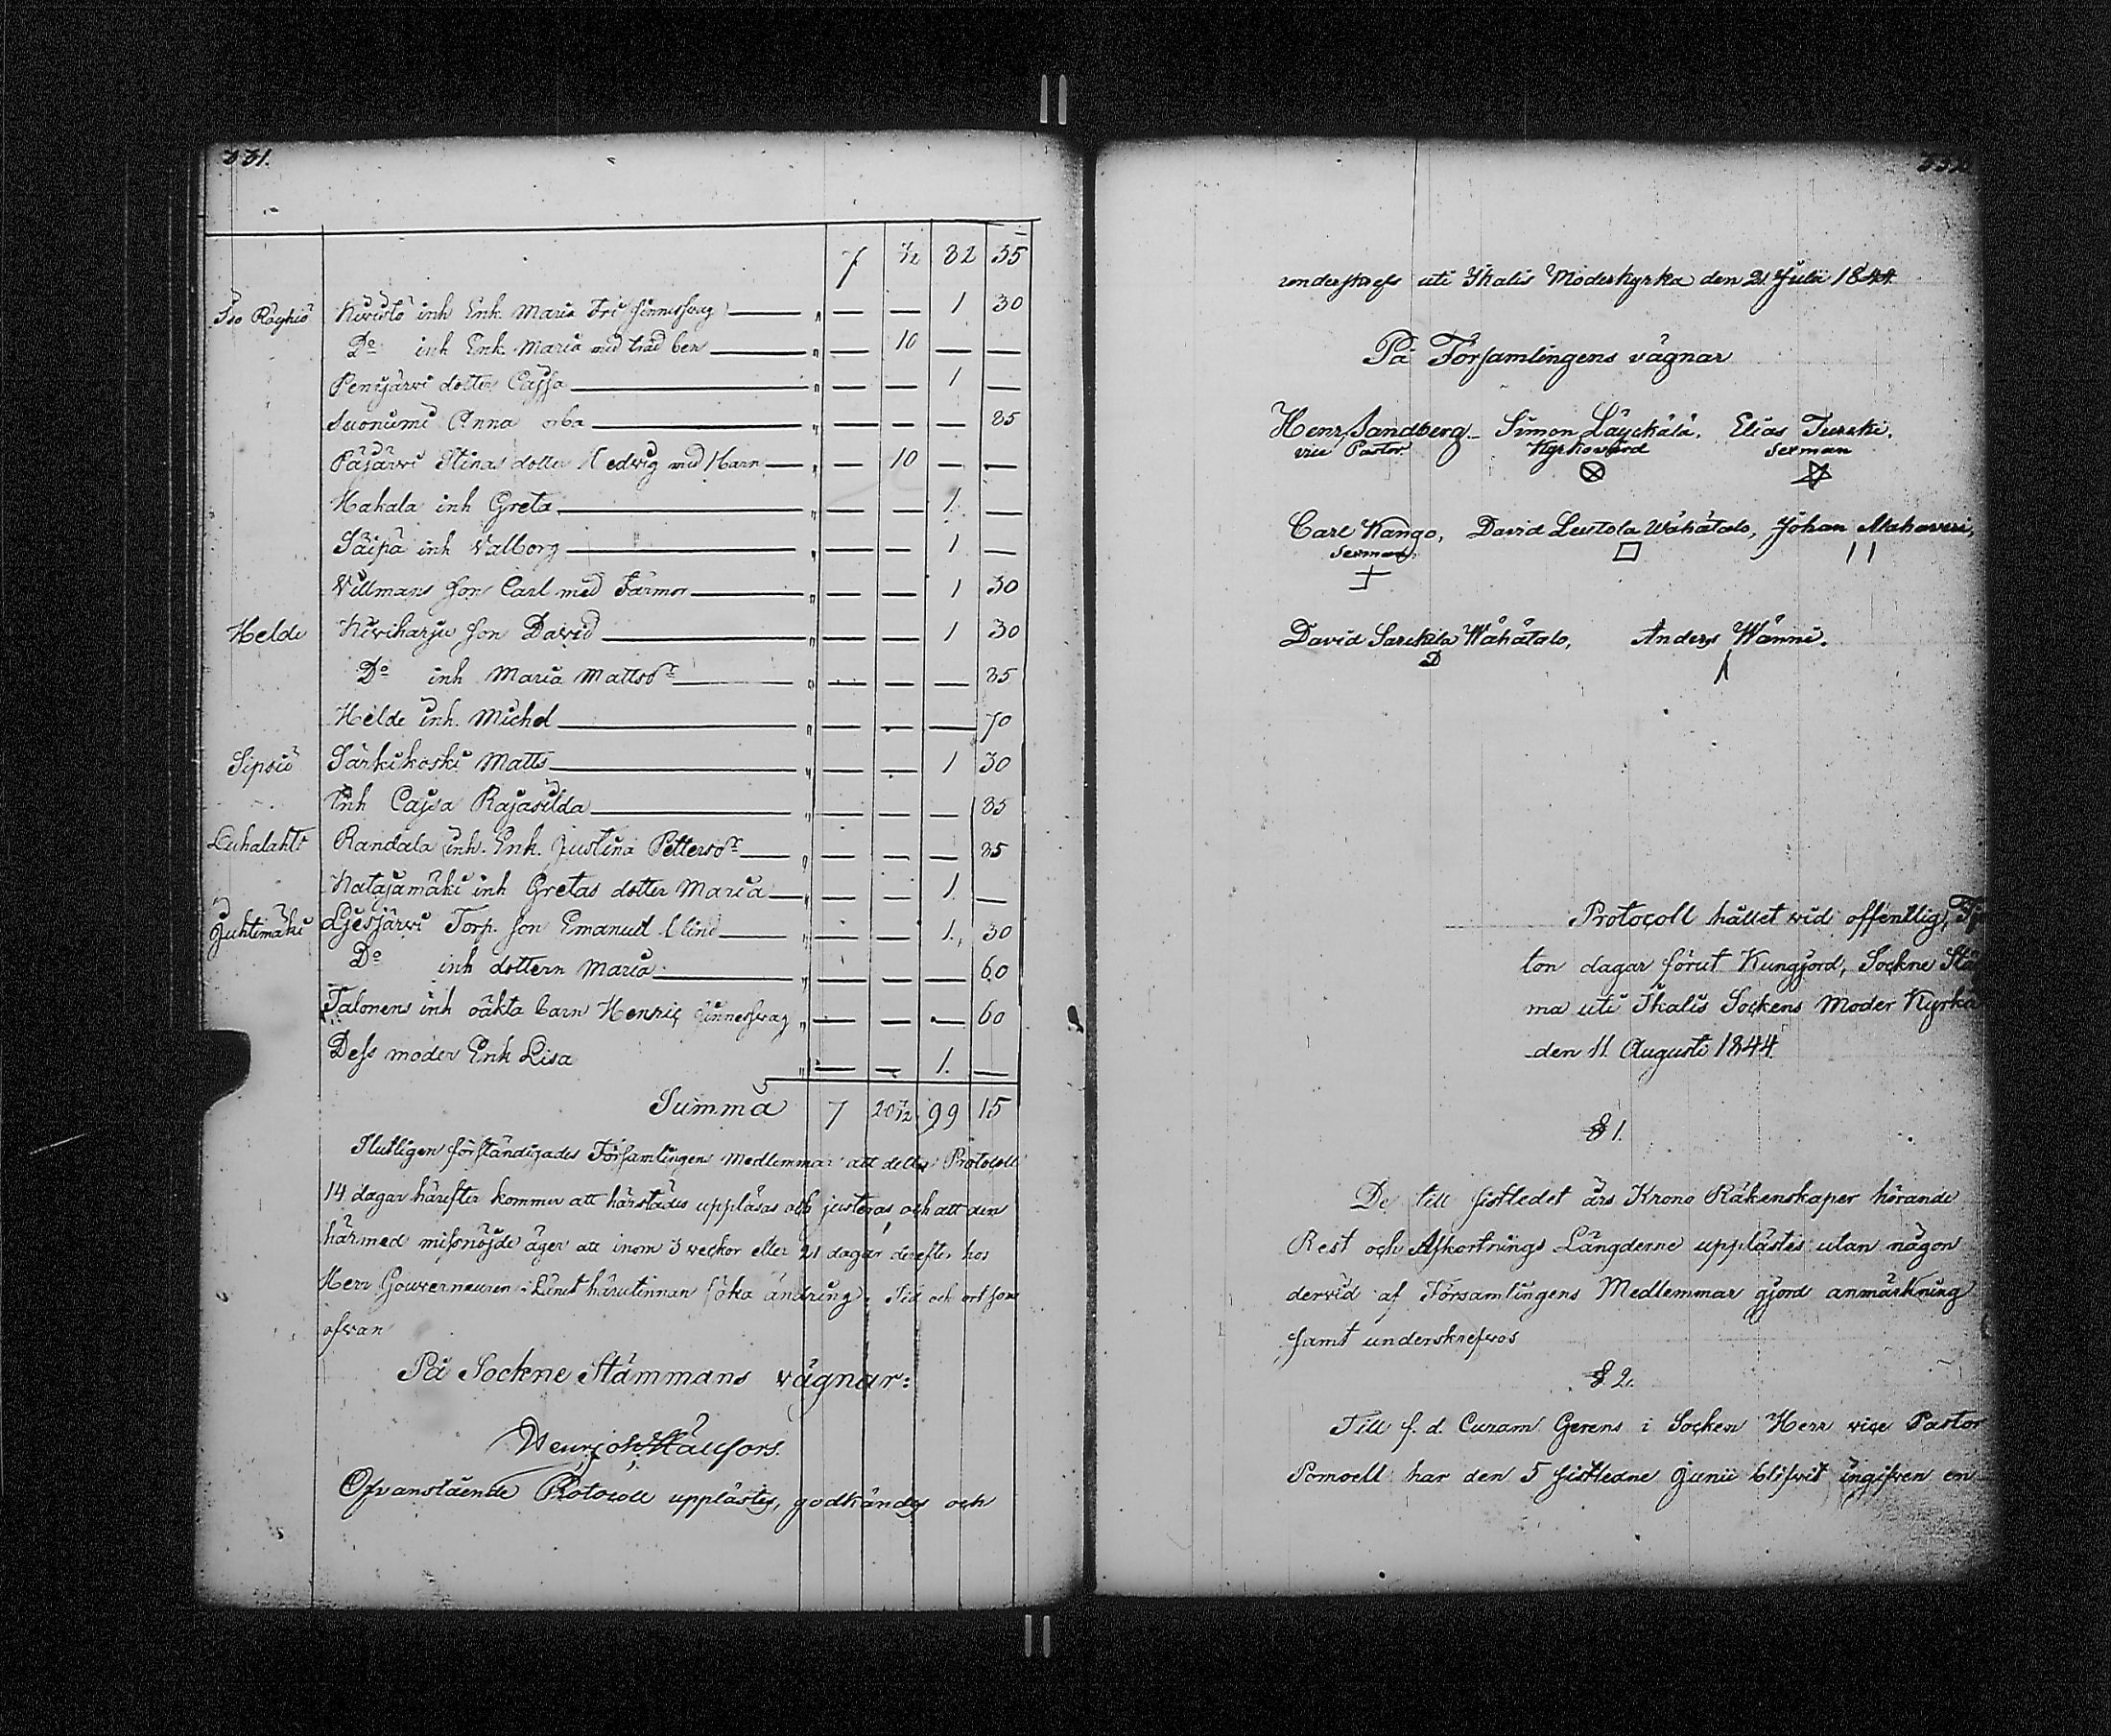 331.
7 ½ 82 35
Iso Röyhiö Kivistö inh Enk Maria Fri sinnesswag " — — 1 30
Do inh Enk Maria med träd ben " — 10 — —
Penijärvi dotter Cajsa " — — 1 —
Suoniemi Anna orba " — — — 35
Päjärvi Stinas dotter Hedvig med Barn " — 10 — —
Hakala inh Greta " — — 1. —
Säipä inh Valborg " — — 1 —
Villmans son Carl med Farmor " — — 1 30
Heldi Kiviharju son David " — — 1 30
Do inh Maria Mattsdr " — — — 35
Helde inh. Michel " — — — 70
Sipsiö Särkikoski Matts " — — 1 30
Inh Cajsa Rajasilda " — — — 35
Luhalahti Randala inh. Enk. Justina Pettersdr " — — — 35
Natajamäki inh Gretas dotter Maria " — — 1. —
Juhtimäki Ljesjärvi Torp. son Emanuel blind " — — 1. 30
Do inh dottern Maria " — — — 60
Talonens inh oäkta barn Henric sinnesswag " — — — 60
Dess moder Enk Lisa " — — 1. —
Summa 7 20½ 99 15
Slutligen förständigades Församlingens medlemmar att detta Protocoll
14 dagar härefter kommer att härstädes uppläsas och justeras, och att den
härmed missnöjde äger att inom 3 veckor eller 21 dagar derefter hos
Herr Gouverneuren i Länet härutinnan söka ändring. Tid och ort som
ofvan
På Sockne Stämmans vägnar:
Henr Joh Hällfors.
Ofvanstående Protocoll upplästes, godkändes och
332
underskrefs uti Ikalis Moderkyrka den 21 Julii 1844.
På Församlingens vägnar
Henr Sandberg Simon Läyckälä, Elias Turcki.
vice Pastor Kyrkovärd Sexman
Carl Kango, David Leutola Wähätalo, Johan Mahaveri,
Sexman
David Sarckila Wähätalo, Anders Wänni.
D
Protocoll hållet vid offentlig,
ton dagar förut Kungjord, Sockne Stä
ma uti Ikalis Sockens Moder Kyrka
den 11. Augusti 1844
§ 1.
De till sistledet års Krono Räkenskaper hörande
Rest och Afkortnings Längderne upplästes utan någon
dervid af Församlingens Medlemmar gjord anmärkning
samt underskrefvos
§ 2.
Till f. d. Curam Gerens i Socken Herr vice Pastor
Pomoell har den 5 sistledne Junii blifvit ingifven en